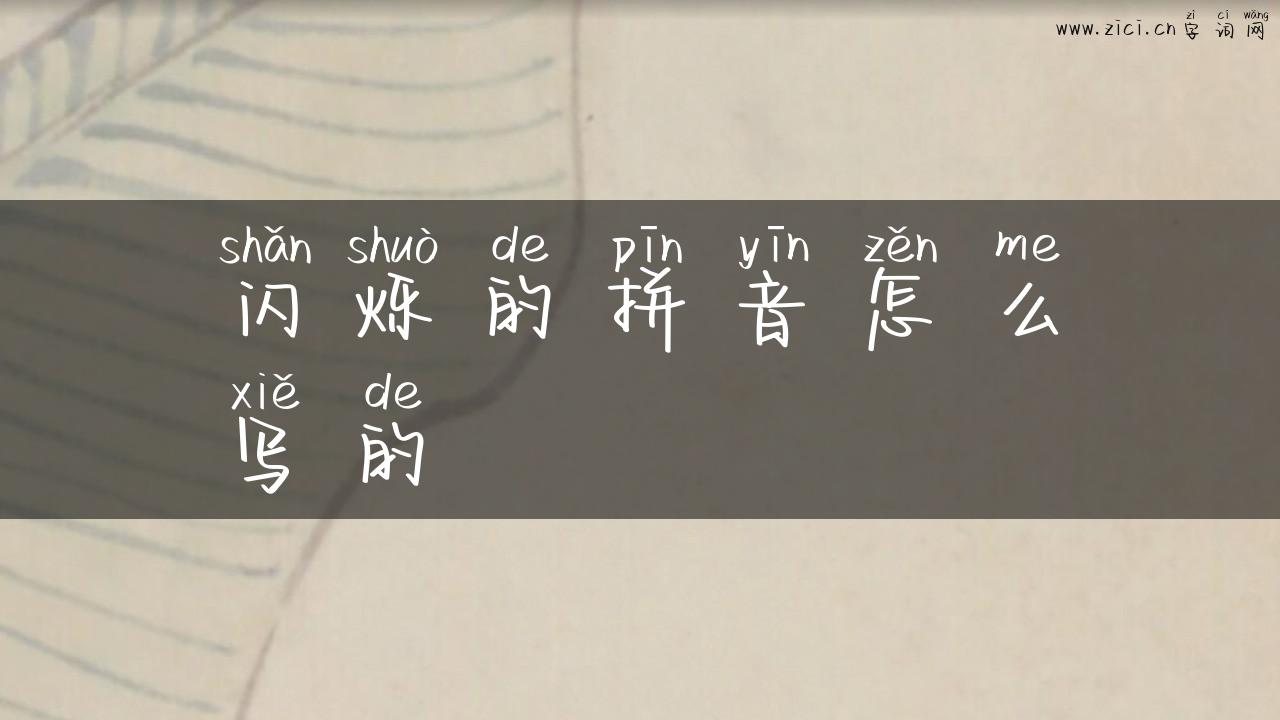 zì cí wǎng
www.zici.cn 字词网
shǎn shuò de pīn yīn zěn me
闪烁的拼音怎么
xiě de
写的